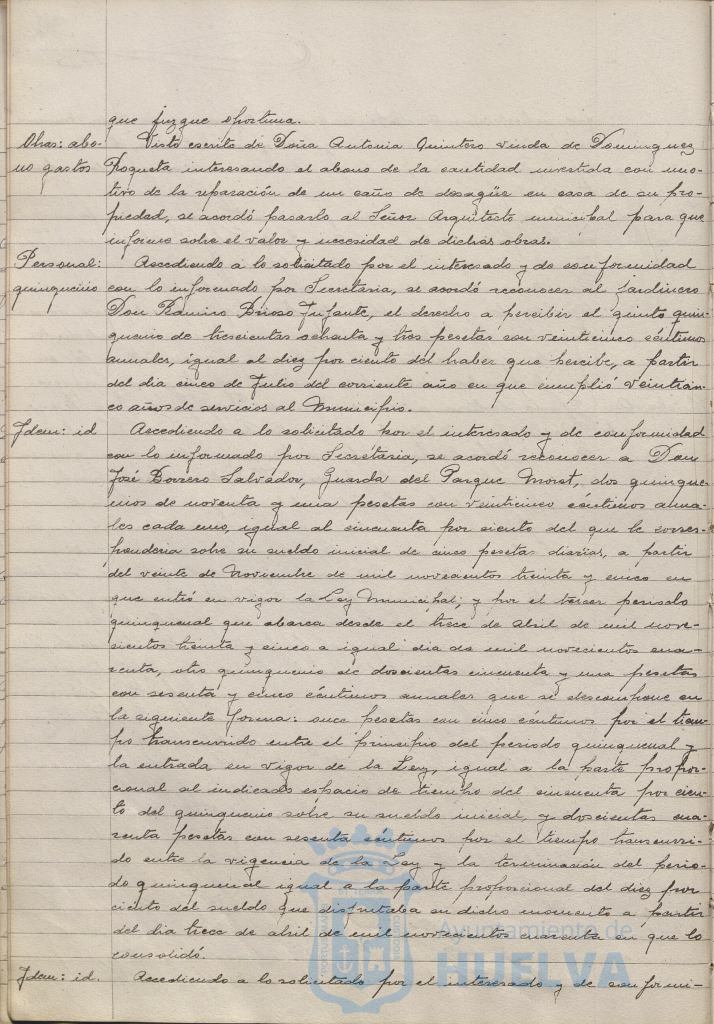 que juzgue oportuna.
Obras: abo-
no gastos
Visto escrito de Doña Antonia Quintero viuda de Dominguez
Roqueta interesando el abono de la cantidad invertida con mo-
tivo de la reparación de un caño de desagüe en casa de su pro-
piedad, se acordó pasarlo al Señor Arquitecto municipal para que
informe sobre el valor y necesidad de dichas obras.
Personal:
quinquenio
Accediendo a lo solicitado por el interesado y de conformidad
con lo informado por Secretaria, se acordó reconocer al jardinero
Don Ramiro Brioso Infante, el derecho a percibir el quinto quin-
quenio de trescientas ochenta y tres pesetas con veinticinco céntimos
anuales, igual al diez por ciento del haber que percibe, a partir
del dia cinco de Julio del corriente año en que cumplió veinticin-
co años de servicios al Municipio.
Idem: id
Accediendo a lo solicitado por el interesado y de conformidad
con lo informado por Secretaria, se acordó reconocer a Don
José Borrero Salvador, Guarda del Parque Moret, dos quinque-
nios de noventa y una pesetas con veinticinco céntimos anua-
les cada uno, igual al cincuenta por ciento del que le corres-
ponderia sobre su sueldo inicial de cinco pesetas diarias, a partir
del veinte de Noviembre de mil novecientos treinta y cinco en
que entró en vigor la Ley Municipal; y por el tercer periodo
quinquenal que abarca desde el trece de abril de mil nove-
cientos treinta y cinco a igual dia de mil novecientos cua-
renta, otro quinquenio de doscientas cincuenta y una pesetas
con sesenta y cinco céntimos anuales que se descompone en
la siguiente forma: once pesetas con cinco céntimos por el tiem-
po transcurrido entre el principio del periodo quinquenal y
la entrada en vigor de la Ley, igual a la parte propor-
cional al indicado espacio de tiempo del cincuenta por cien-
to del quinquenio sobre su sueldo inicial, y doscientas cua-
renta pesetas con sesenta céntimos por el tiempo transcurri-
do entre la vigencia de la Ley y la terminación del perio-
do quinquenal igual a la parte proporcional del diez por
ciento del sueldo que disfrutaba en dicho momento a partir
del dia trece de abril de mil novecientos cuarenta en que lo
consolidó.
Ayuntamiento de
HUELVA
Idem: id.
Accediendo a lo solicitado por el interesado y de conformi-